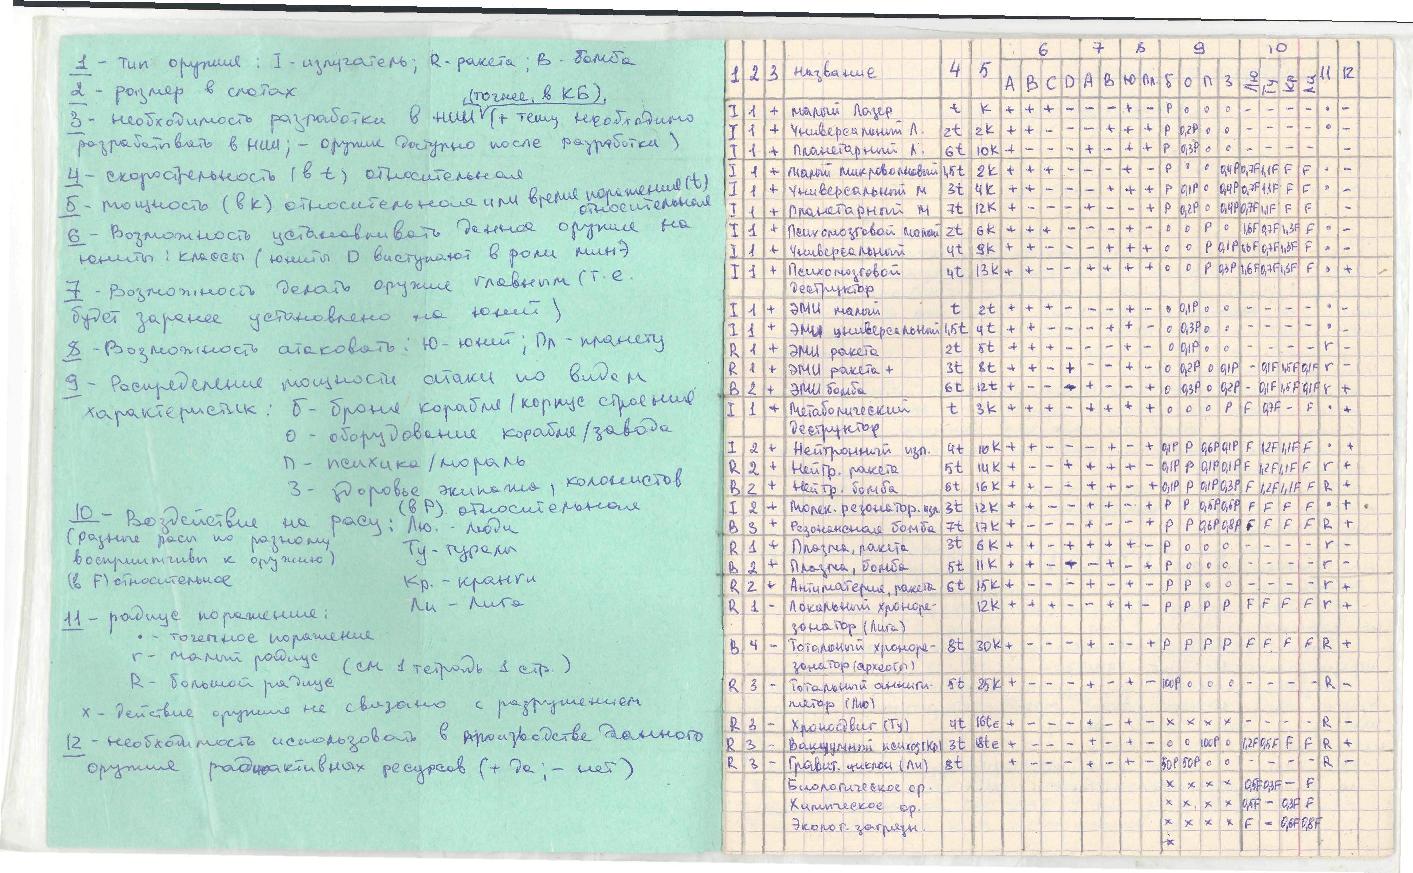 1 - тип оружия: I - излучатель; R - ракета; B - бомба
2 - размер в слотах
(точнее, в КБ),
3 - необходимость разработки в НИИ (+ тему необходимо
разрабатывать в НИИ; - оружие доступно после разработки)
4 - скорость (в t) относительная
5 - мощность (в K) относительная или время поражения (t)
относительная
6 - Возможность устанавливать данное оружие на
юниты: классы (юниты D выступают в роли мин)
7 - Возможность делать оружие главным (т.е.
будет заранее установлено на юнит)
8 - Возможность атаковать: Ю - юнит; Пл - планету
9 - Распределение мощности атаки по видам
характеристик: б - броня корабля/корпус строения
о - оборудование корабля/завода
п - психика/мораль
З - здоровье экипажа, колонистов
(в P) относительная
10 - Воздействие на расу: Лю. - Люди
(разные расы по разному
восприимчивы к оружию)
Ту - туралы
(в F) относительное
Кр. - кранги
Ли - Лига
11 - радиус поражения:
• - точечное поражение
r - малый радиус (см 1 тетрадь 1 стр.)
R - большой радиус
x - действие оружия не связано с разрушением
12 - необходимость использовать в производстве данного
оружия радиоактивных ресурсов (+ да; - нет)
6 7 8 9 10
1 2 3 название 4 5 A B C D A B Ю Пл б о п З Лю Ту Кр Ли 11 12
I 1 + малый Лазер t K + + + - - - + - P o o o - - - - • -
I 1 + Универсальный Л. 2t 2K + + - - - + + + P 0,2P o o - - - - • -
I 1 + Планетарный Л. 6t 10K + - - - + - + P 0,3P o o
I 1 + малый микроволновый 1,5t 2K + + + - - - + - P o o 0,4P 0,7F 1,1F F F • -
I 1 + Универсальный м 3t 4K + + - - - + + + P 0,1P o 0,4P 0,7F 1,1F F F • -
I 1 + Планетарный м 7t 12K + - - - + - - + P 0,2P o 0,4P 0,7F 1,1F F F • -
I 1 + Психомозговой малый 2t 6K + + + - - - + - o o P o 1,6F 0,7F 1,3F F • -
I 1 + Универсальный 4t 9K + + - - - + + + o o P 0,1P 1,6F 0,7F 1,3F F • -
I 1 + Психомозговой 4t 13K + + - - + + + + o o P 0,3P 1,6F 0,7F 1,3F F • +
деструктор
I 1 + ЭМИ малый t 2t + + + - - - + - o 0,1P o o • -
I 1 + ЭМИ универсальный 1,5t 4t + + - - - + + - o 0,3P o o • -
R 1 + ЭМИ ракета 2t 5t + + + - - - + - o 0,1P o o - - - - r -
R 1 + ЭМИ ракета + 3t 8t + + - + - + + - o 0,2P o 0,1P - 0,1F 1,5F 0,1F r -
B 2 + ЭМИ бомба 6t 12t + - - + + - - + o 0,3P o 0,2P - 0,1F 1,5F 0,1F r +
I 1 + Метаболический t 3K + + + - + + + + o o o P F 0,7F - F • +
деструктор
I 2 + Нейтронный изл. 4t 10K + + - - - + - + 0,1P P 0,6P 0,1P F 1,2F 1,1F F • +
R 2 + Нейтр. ракета 5t 14K + + - + + + + - 0,1P P 0,1P 0,1P F 1,2F 1,1F F r +
B 2 + Нейтр. бомба 6t 16K + + - - + + - + 0,1P P 0,1P 0,3P F 1,2F 1,1F F R +
I 2 + Молек. резонатор. изл. 3t 12K + + - - + + - + P P 0,5P 0,5P F F F F • +
B 3 + Резонансная бомба 7t 17K + + - - + + - + P P 0,6P 0,8P F F F F R +
R 1 + Плазма, ракета 3t 6K + + - + + + + - P o o o - - - - r -
B 2 + Плазма, бомба 5t 11K + + - + - + - + P o o o - - - - r -
R 2 + Антиматерия, ракета 6t 15K + + - - + + - + P P o o - - - - r +
R 1 - Локальный хроноре- 12K + + + - - + + - P P P P F F F F r +
зонатор (Лига)
B 4 - Тотальный хроноре- 8t 30K + - - - + - - + P P P P F F F F R +
зонатор (археоты)
R 3 - Тотальный анниги- 5t 25K + - - - + - + - 100P o o o - - - - R -
лятор (Лю)
R 3 - Хроносдвиг (Ту) 4t 16tе + - - - + - + - x x x x R -
R 3 - Вакуумный психоз (Кр) 3t 18tе + - - - + - + - o o 100P o 1,2F 0,5F F F R +
R 3 - Гравит. циклон (Ли) 8t + - - - + - + - 50P 50P o o - - - - R -
Биологическое ор. x x x x 0,5F 0,3F - F
Химическое ор. x x x x 0,5F - 0,3F F
Эколог. загрязн. x x x x F - 0,6F 0,8F
x